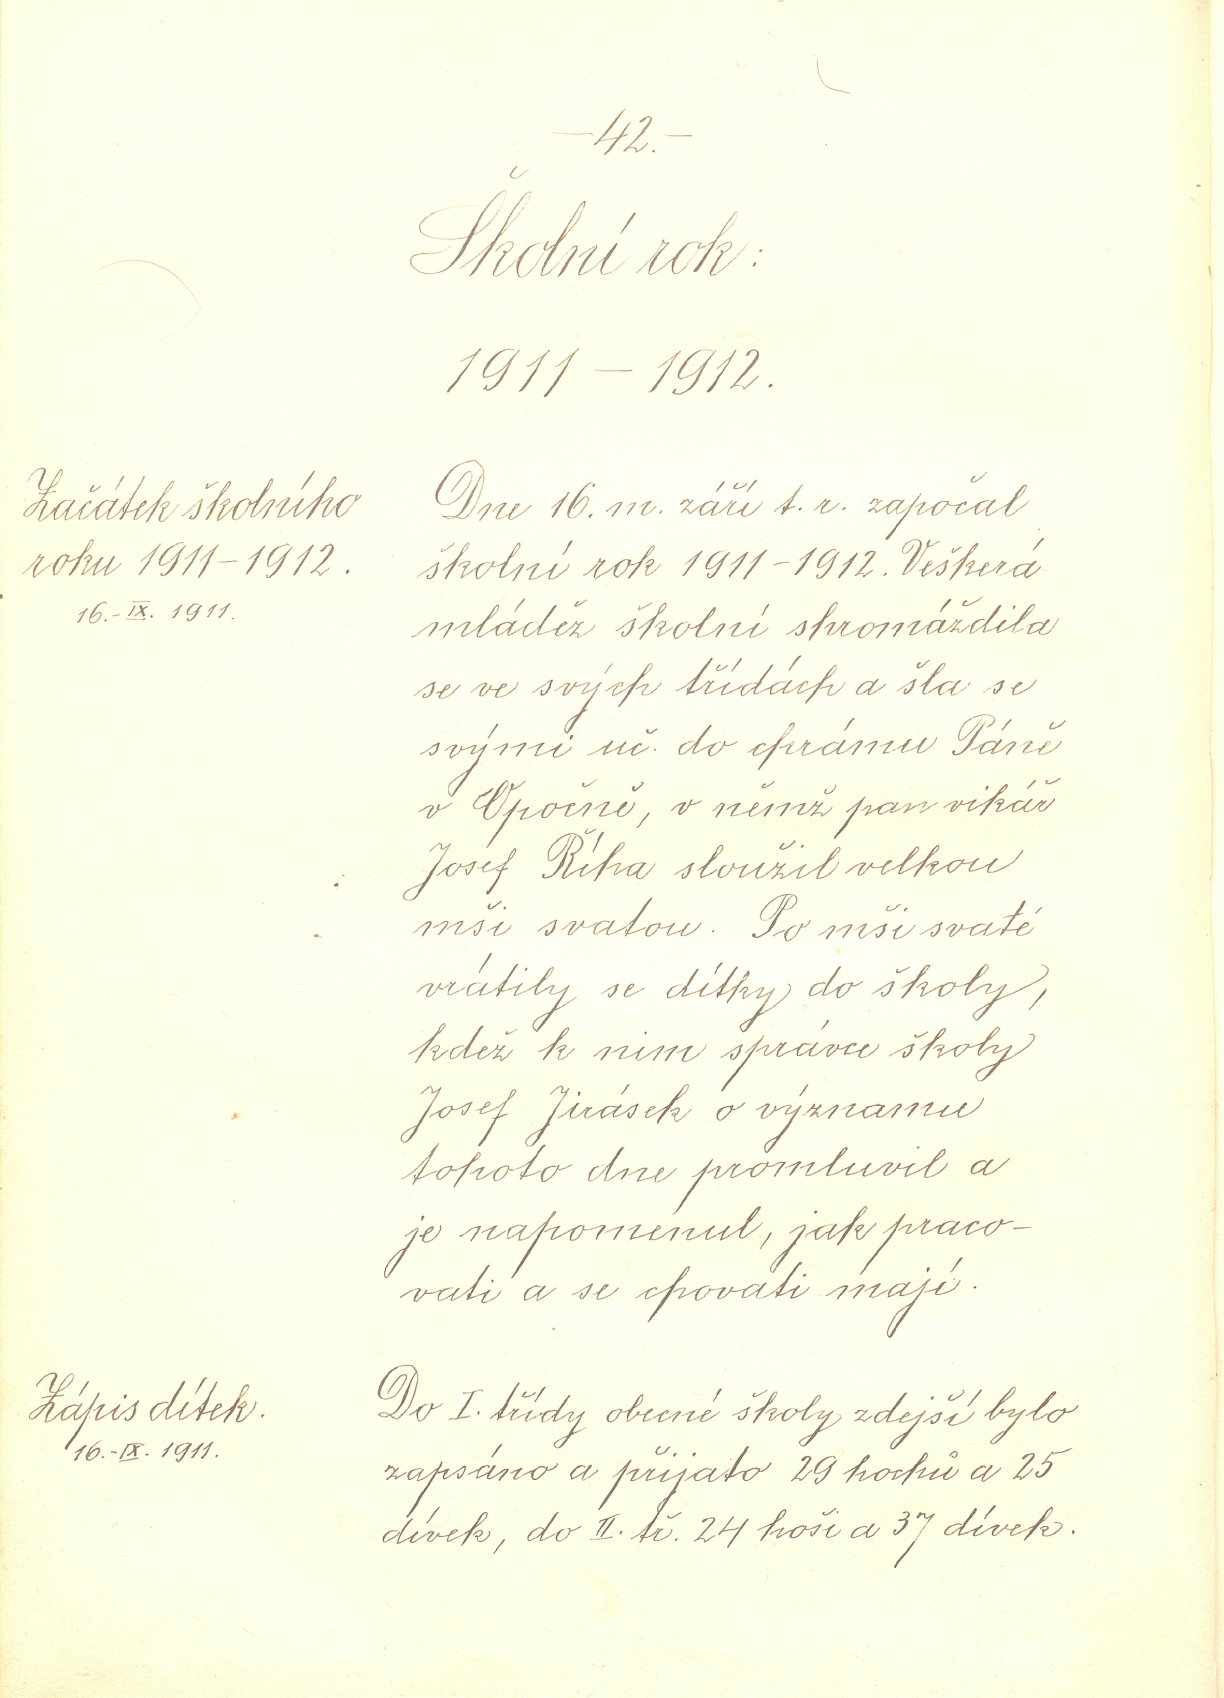 —42.—
Školní rok:
1911 – 1912.
Začátek školního
roku 1911–1912.
16.-IX. 1911.
Dne 16. m. září t. r. započal
školní rok 1911–1912. Veškerá
mládež školní shromáždila
se ve svých třídách a šla se
svými uč. do chrámu Páně
v Opočně, v němž pan vikář
Josef Říha sloužil velkou
mši svatou. Po mši svaté
vrátily se dítky do školy,
kdež k nim správce školy
Josef Jirásek o významu
tohoto dne promluvil a
je napomenul, jak praco-
vati a se chovati mají.
Zápis dítek.
16.-IX. 1911.
Do I. třídy obecné školy zdejší bylo
zapsáno a přijato 29 hochů a 25
dívek, do II. tř. 24 hoši a 37 dívek.